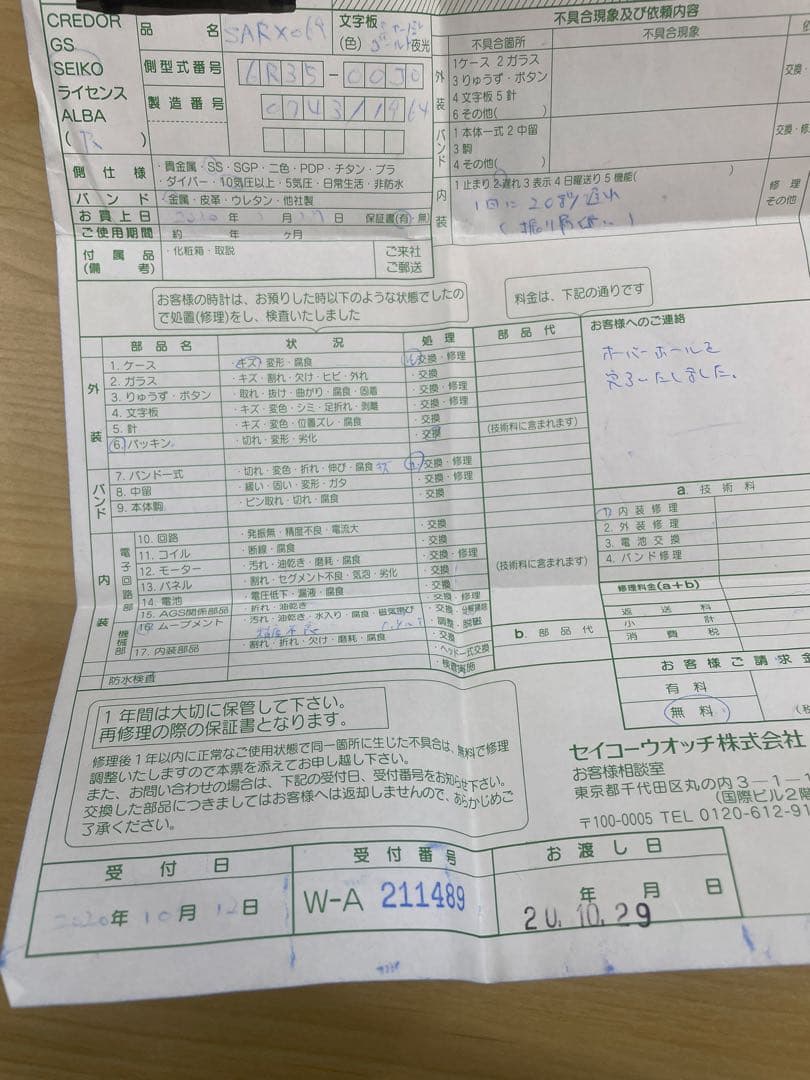 CREDOR
GS
SEIKO
ライセンス
ALBA
品名 SARX069
文字板(色) ゴールド夜光
側型式番号 6R35-00J0
製造番号
側仕様 ・貴金属・SS・SGP・二色・PDP・チタン・プラ
・ダイバー・10気圧以上・5気圧・日常生活・非防水
バンド ・金属・皮革・ウレタン・他社製
お買上日 2020年 月 日 保証書(有・無)
ご使用期間 約 年 ヶ月
付属品(備考) ・化粧箱・取説
ご来社
ご郵送
不具合現象及び依頼内容
不具合箇所 不具合現象
外装
1ケース 2ガラス
3りゅうず・ボタン
4文字板 5針
6その他( )
バンド
1本体一式 2中留
3駒
4その他( )
内装
1止まり 2遅れ 3表示 4日曜送り 5機能( )
1回に20秒遅れ
修理
その他
お客様の時計は、お預りした時以下のような状態でしたので処置(修理)をし、検査いたしました
料金は、下記の通りです
部品名 状況 処理 部品代
外装
1. ケース ・キズ・変形・腐食 ・交換・修理
2. ガラス ・キズ・割れ・欠け・ヒビ・外れ ・交換
3. りゅうず・ボタン ・取れ・抜け・曲がり・腐食・固着 ・交換・修理
4. 文字板 ・キズ・変色・シミ・足折れ・剥離 ・交換・修理
5. 針 ・キズ・変色・位置ズレ・腐食 ・交換
6. パッキン ・切れ・変形・劣化 ・交換
(技術料に含まれます)
バンド
7. バンド一式 ・切れ・変色・折れ・伸び・腐食 キズ ・交換・修理
8. 中留 ・緩い・固い・変形・ガタ ・交換・修理
9. 本体駒 ・ピン取れ・切れ・腐食 ・交換
内装
電子回路部
10. 回路 ・発振無・精度不良・電流大 ・交換
11. コイル ・断線・腐食 ・交換
12. モーター ・汚れ・油乾き・磨耗・腐食 ・交換・修理
13. パネル ・割れ・セグメント不良・気泡・劣化 ・交換
14. 電池 ・電圧低下・漏液・腐食 ・交換
15. AGS関係部品 ・折れ・油乾き ・交換・修理
機械部
16. ムーブメント ・汚れ・油乾き・水入り・腐食・磁気帯び ・交換・分解掃除
精度不良 ・調整・脱磁
17. 内装部品 ・割れ・折れ・欠け・磨耗・腐食 ・交換
・ヘッド一式交換
防水検査 ・検査実施
(技術料に含まれます)
お客様へのご連絡
オーバーホールを
完了いたしました。
a. 技術料
1. 内装修理
2. 外装修理
3. 電池交換
4. バンド修理
b. 部品代
修理料金(a+b)
返送料
小計
消費税
お客様ご請求金
有料
無料
1年間は大切に保管して下さい。
再修理の際の保証書となります。
修理後1年以内に正常なご使用状態で同一箇所に生じた不具合は、無料で修理
調整いたしますので本票を添えてお申し越し下さい。
また、お問い合わせの場合は、下記の受付日、受付番号をお知らせ下さい。
交換した部品につきましてはお客様へは返却しませんので、あらかじめご
了承ください。
セイコーウオッチ株式会社
お客様相談室
東京都千代田区丸の内3-1-1
(国際ビル2階
〒100-0005 TEL 0120-612-91
受付日 受付番号 お渡し日
2020年10月12日 W-A 211489 年 月 日
20.10.29